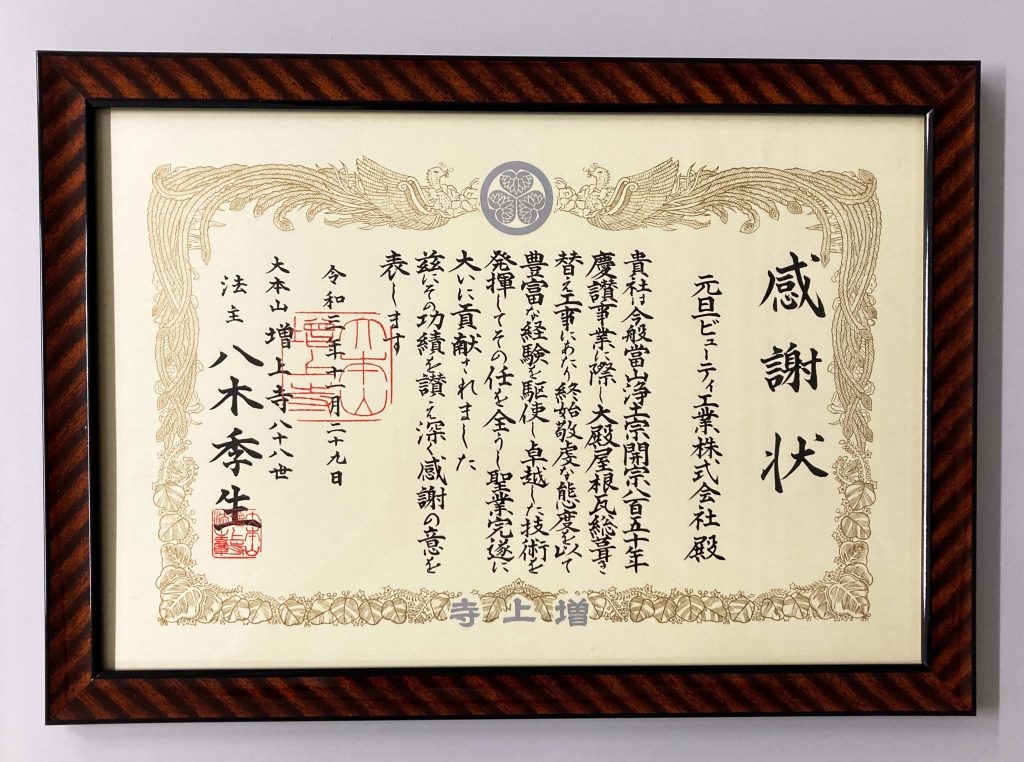 感謝状
元旦ビューティ工業株式会社殿
貴社は今般當山浄土宗開宗八百五十年
慶讃事業に際し大殿屋根瓦総葺き
替え工事にあたり終始敬虔な態度を以て
豊富な経験を駆使し卓越した技術を
発揮してその任を全うし聖業完遂に
大いに貢献されました
茲にその功績を讃え深く感謝の意を
表します
令和三年十一月二十九日
大本山増上寺八十八世
法主八木季生
大本山
増上寺
増上寺